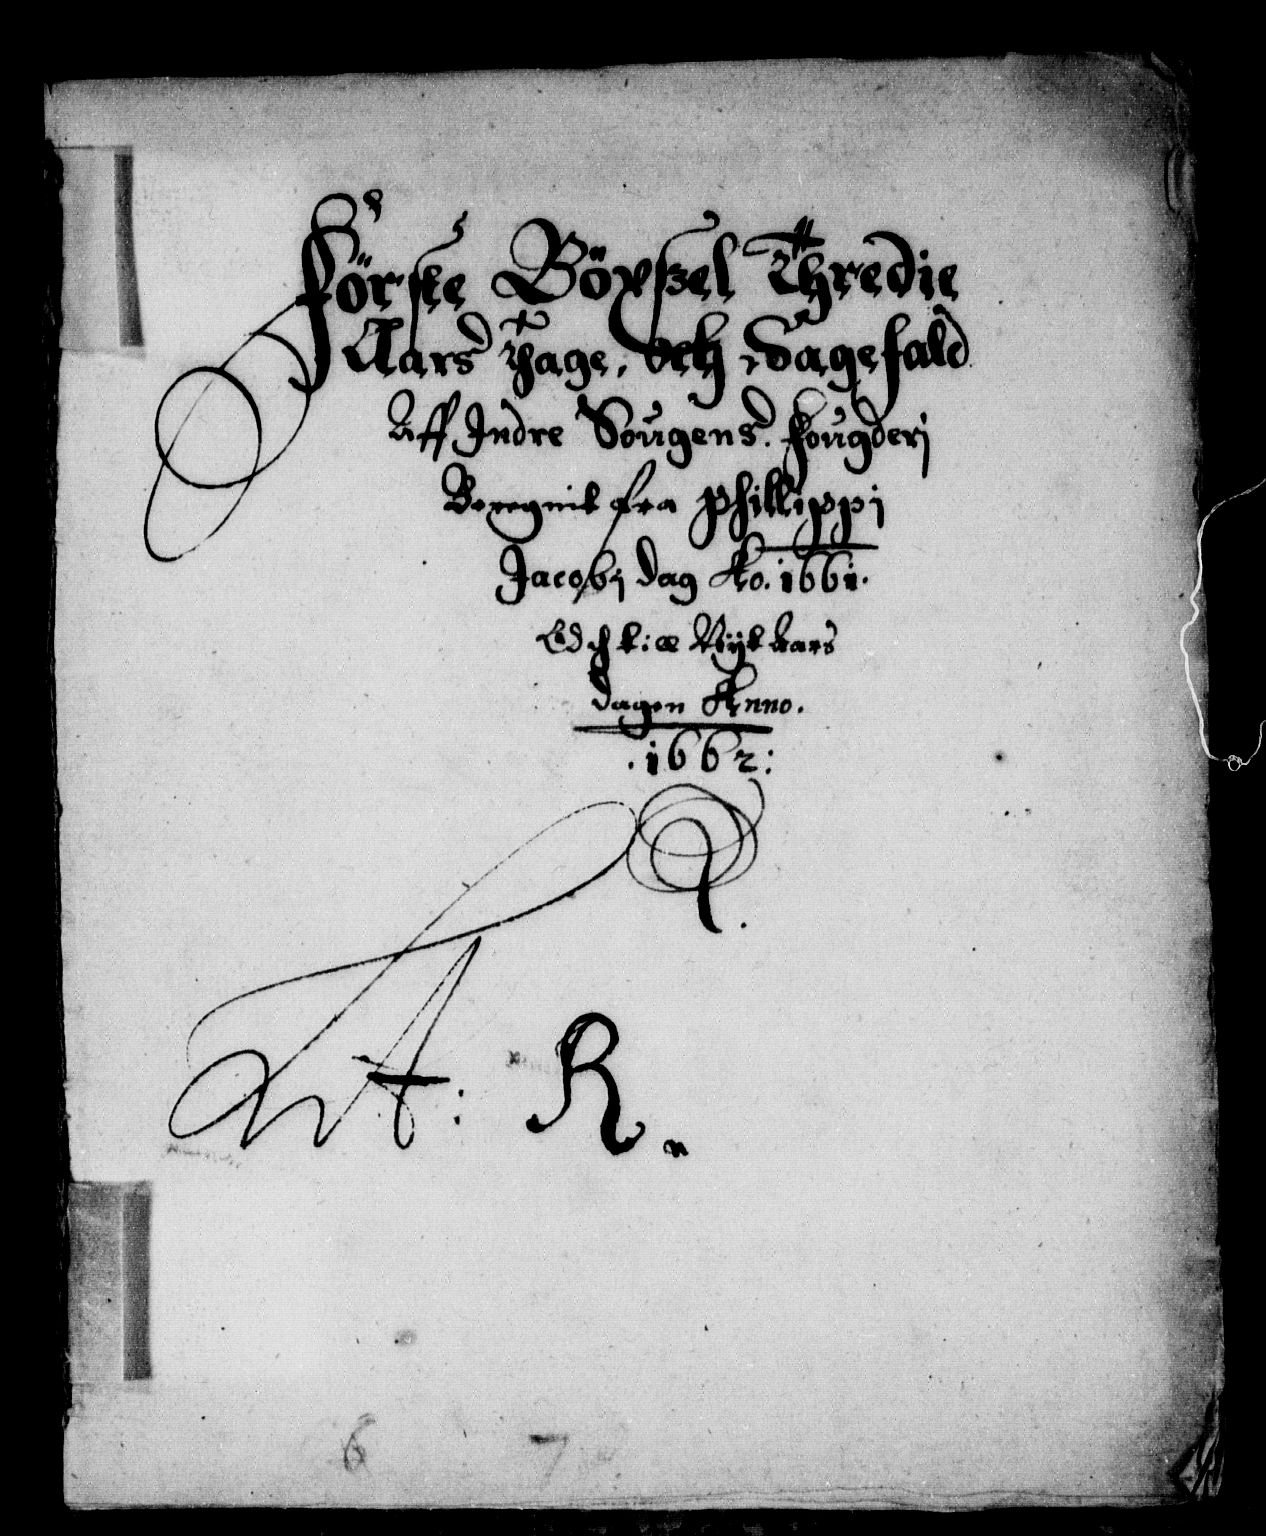 Förste Böxszel Thredie
Aars Thage, och Sagefald
Aff Indre Sougens. fougderj
Beregnit fra Phillippi
Jacobj dag Ao. 1661.
Och til Nyt Aars
dagen Anno.
.1662:
A: R.
6 7